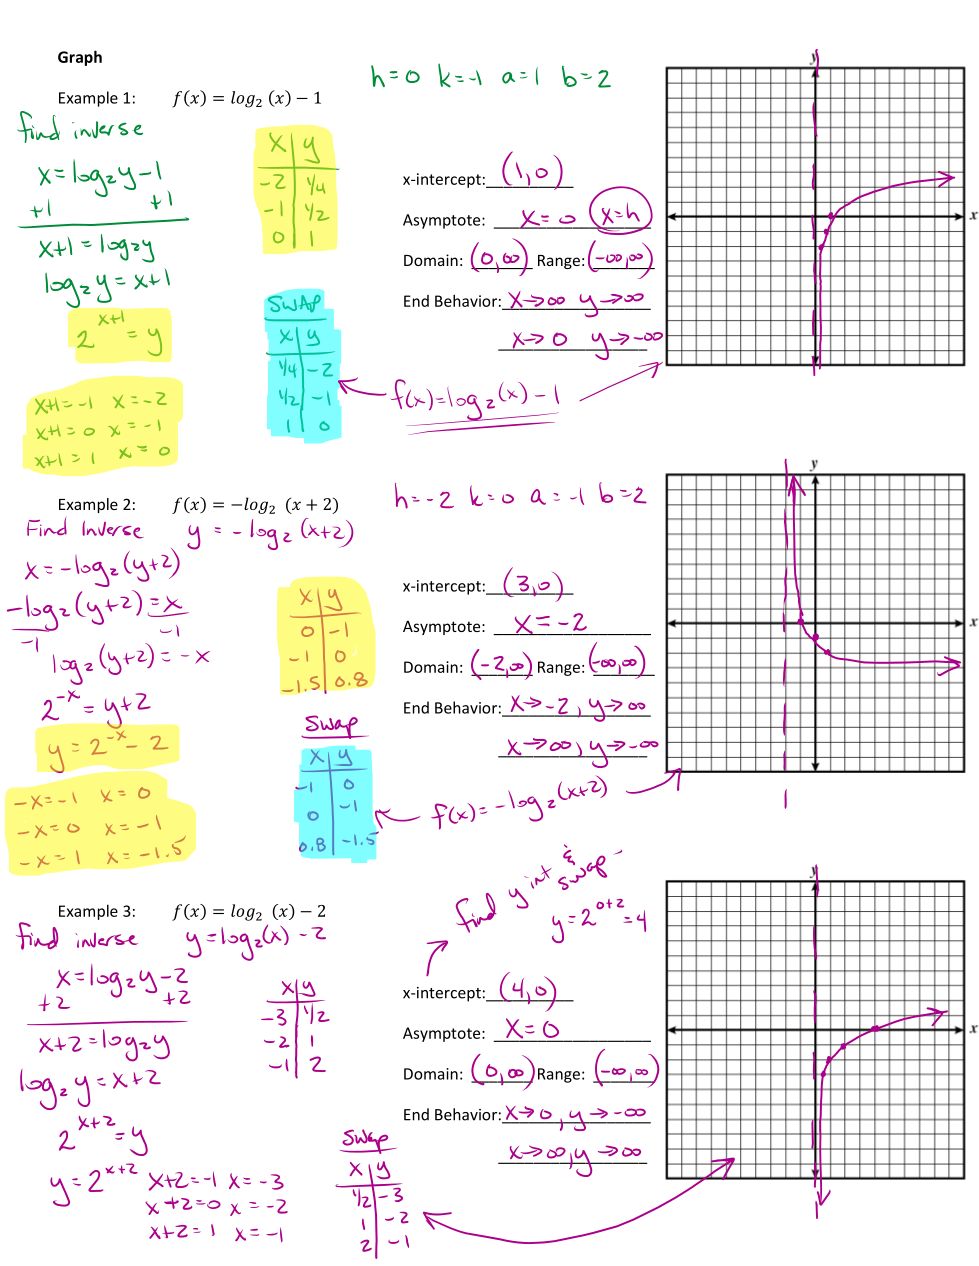 Graph
h=0 k=-1 a=1 b=2
Example 1: f(x) = log₂ (x) − 1
find inverse
x=log₂y-1
+1 +1
x+1=log₂y
log₂y=x+1
2^(x+1) = y
x+1=-1 x=-2
x+1=0 x=-1
x+1=1 x=0
x | y
-2 | 1/4
-1 | 1/2
0 | 1
SWAP
x | y
1/4 | -2
1/2 | -1
1 | 0
x-intercept: (1,0)
Asymptote: x=0 (x=h)
Domain: (0,∞) Range: (-∞,∞)
End Behavior: x→∞ y→∞
x→0 y→-∞
f(x)=log₂(x)-1
y
x
Example 2: f(x) = −log₂ (x + 2)
h=-2 k=0 a=-1 b=2
Find Inverse y=-log₂(x+2)
x=-log₂(y+2)
-log₂(y+2)=x
-1 -1
log₂(y+2)=-x
2^(-x)=y+2
y=2^(-x)-2
-x=-1 x=0
-x=0 x=-1
-x=1 x=-1.5
x | y
0 | -1
-1 | 0
-1.5 | 0.8
Swap
x | y
-1 | 0
0 | -1
0.8 | -1.5
x-intercept: (3,0)
Asymptote: x=-2
Domain: (-2,∞) Range: (-∞,∞)
End Behavior: x→-2, y→∞
x→∞, y→-∞
f(x)=-log₂(x+2)
y
x
Example 3: f(x) = log₂ (x) − 2
find inverse y=log₂(x)-2
x=log₂y-2
+2 +2
x+2=log₂y
log₂y=x+2
2^(x+2)=y
y=2^(x+2)
x+2=-1 x=-3
x+2=0 x=-2
x+2=1 x=-1
x | y
-3 | 1/2
-2 | 1
-1 | 2
Swap
x | y
1/2 | -3
1 | -2
2 | -1
find y int & swap
y=2^(0+2)=4
x-intercept: (4,0)
Asymptote: x=0
Domain: (0,∞) Range: (-∞,∞)
End Behavior: x→0, y→-∞
x→∞, y→∞
y
x